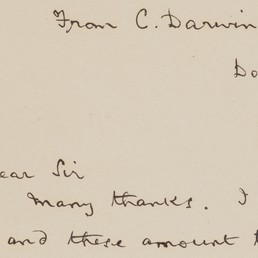 From C. Darwin
Do
ear Sir
Many thanks. I
and these amount t